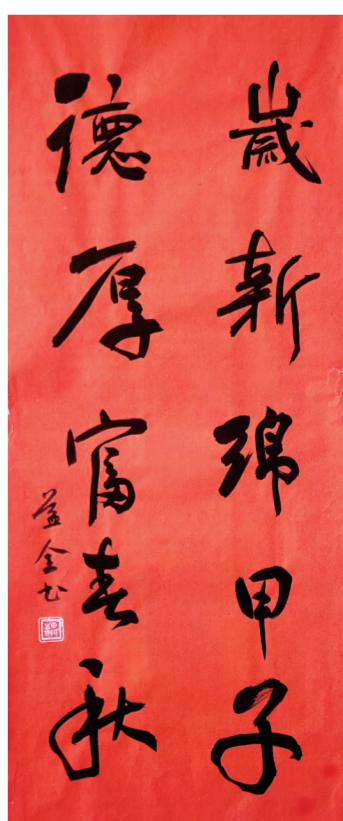 歲新綿甲子
德厚富春秋
益全书